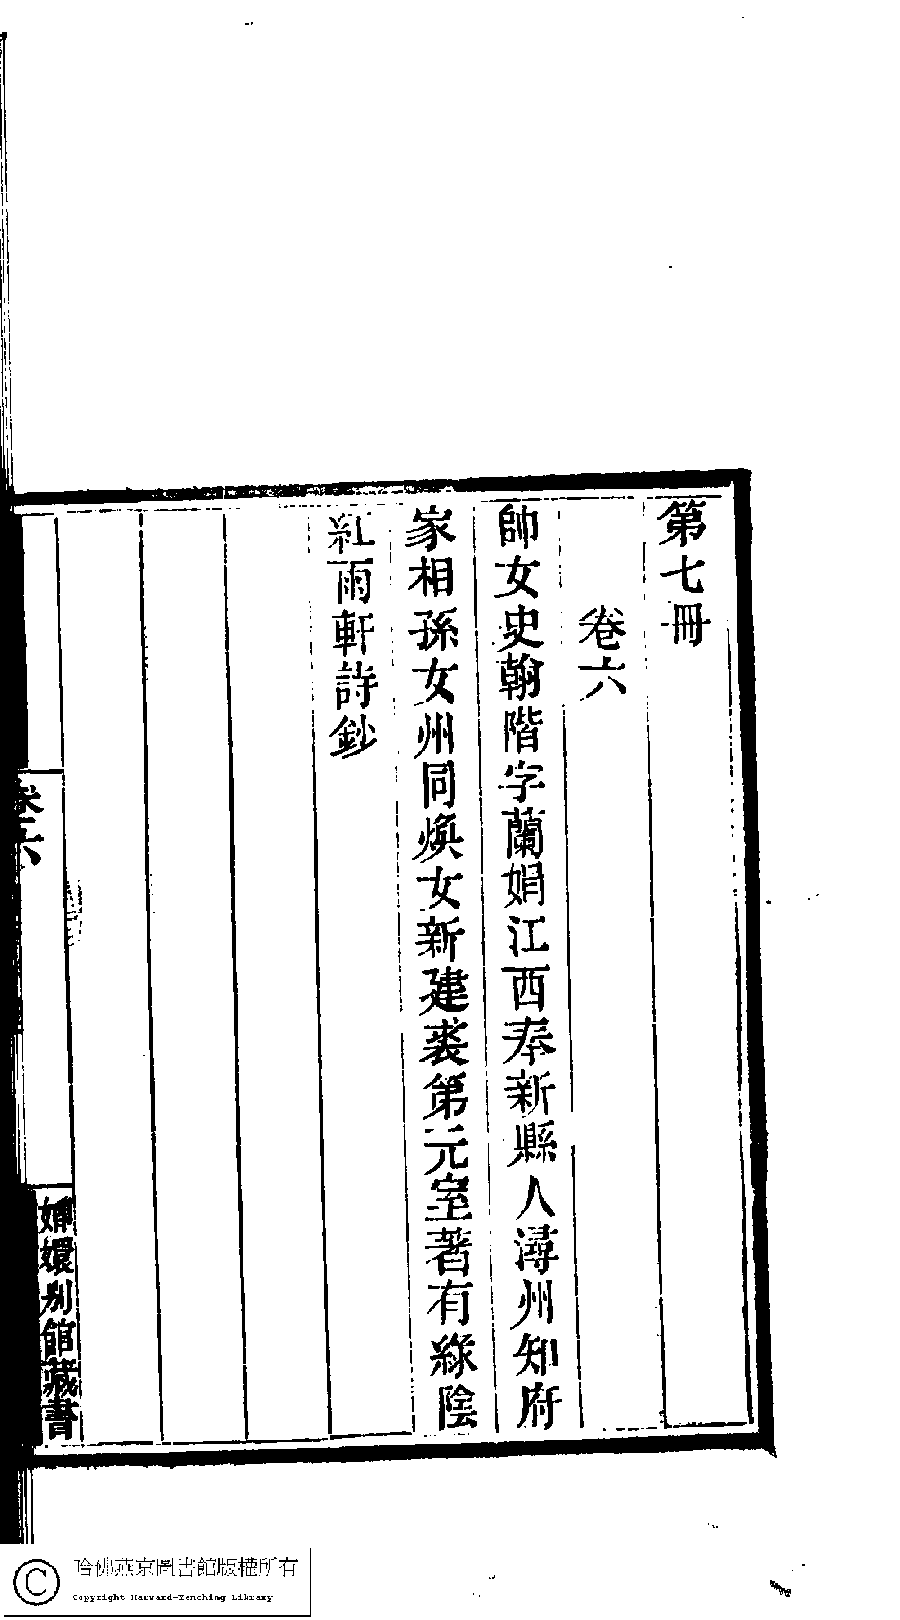 第七冊
卷六
帥女史翰階字蘭娟江西奉新縣人潯州知府
家相孫女州同煥女新建裘第元室著有綠陰
紅雨軒詩鈔
卷六
嫏嬛別館藏書
哈佛燕京圖書館版權所有
Copyright Harvard-Yenching Library